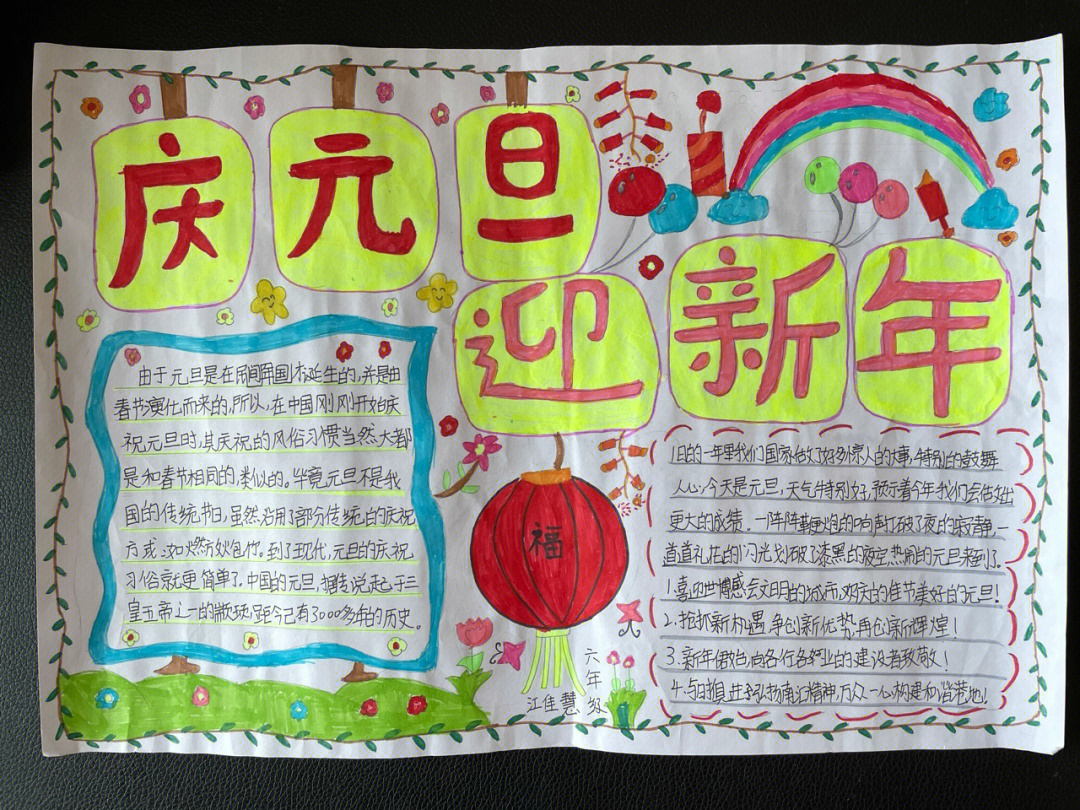 庆元旦
迎新年
由于元旦是在民间军国杰延生的,并是由
春节演化而来的,所以,在中国刚刚开始庆
祝元旦时,其庆祝的风俗习惯当然大都
是和春节相同的,类似的。毕竟元旦不是我
国的传统节日,虽然沿用了部分传统的庆祝
方式:如燃放炮竹。到了现代,元旦的庆祝
习俗就更简单了,中国的元旦,据传说起于三
皇五帝之一的颛顼,距今己有3000多年的历史。
旧的一年里我们国家做了好多惊人的大事,特别的鼓舞
人心,今天是元旦,天气特别好,预示着今年我们会做出
更大的成绩。一阵阵鞭炮的响声打破了夜的寂静,一
道道礼花的闪光划破了漆黑的夜空,热闹的元旦来到了。
1.喜迎世博感会文明的城市,欢庆的佳节美好的元旦!
2.抢抓新机遇,争创新优势,再创新辉煌!
3.新年伊始,向各行各业的建设者致敬!
4.与时俱进,弘扬南江精神,万众一心,构建和谐巷地!
福
六年级
江佳慧